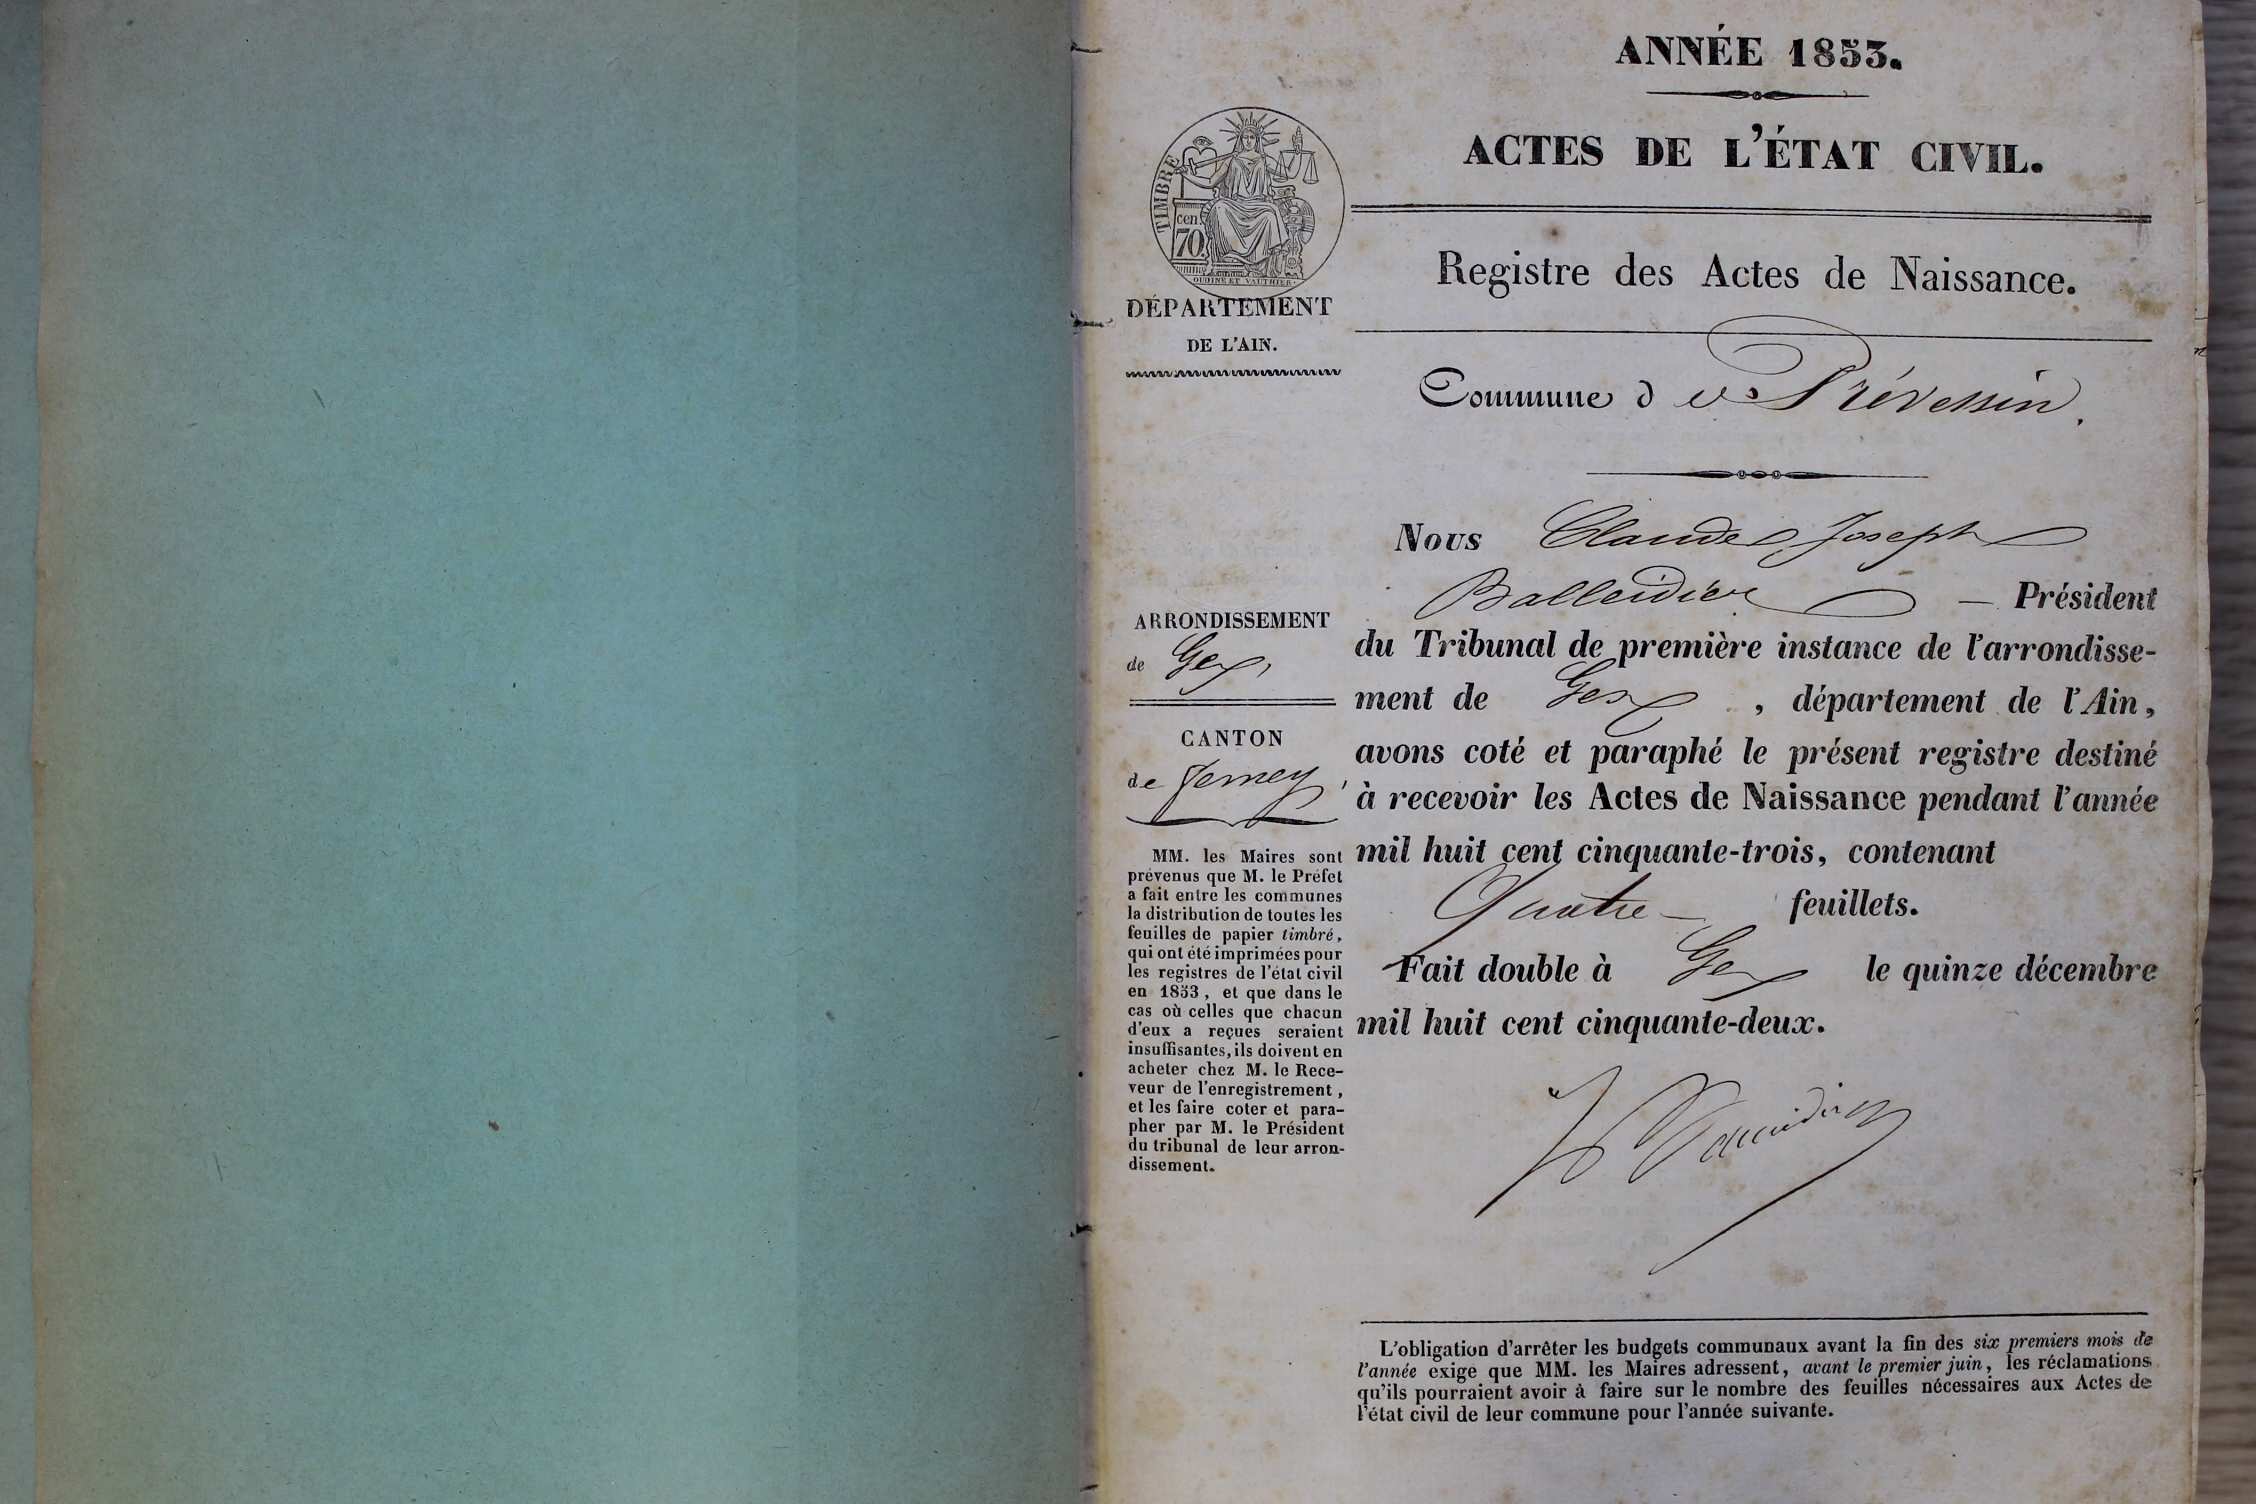 ANNÉE 1853.
ACTES DE L'ÉTAT CIVIL.
Registre des Actes de Naissance.
Commune de Prévessin.
TIMBRE
cen
70.
OUDINE ET VAUTHIER.
DÉPARTEMENT
DE L'AIN.
ARRONDISSEMENT
de Gex,
CANTON
de Ferney,
MM. les Maires sont
prévenus que M. le Préfet
a fait entre les communes
la distribution de toutes les
feuilles de papier timbré,
qui ont été imprimées pour
les registres de l'état civil
en 1853, et que dans le
cas où celles que chacun
d'eux a reçues seraient
insuffisantes, ils doivent en
acheter chez M. le Rece-
veur de l'enregistrement,
et les faire coter et para-
pher par M. le Président
du tribunal de leur arron-
dissement.
Nous Claude Joseph
Balleidier — Président
du Tribunal de première instance de l'arrondisse-
ment de Gex, département de l'Ain,
avons coté et paraphé le présent registre destiné
à recevoir les Actes de Naissance pendant l'année
mil huit cent cinquante-trois, contenant
Quatre feuillets.
Fait double à Gex le quinze décembre
mil huit cent cinquante-deux.
L'obligation d'arrêter les budgets communaux avant la fin des six premiers mois de
l'année exige que MM. les Maires adressent, avant le premier juin, les réclamations
qu'ils pourraient avoir à faire sur le nombre des feuilles nécessaires aux Actes de
l'état civil de leur commune pour l'année suivante.